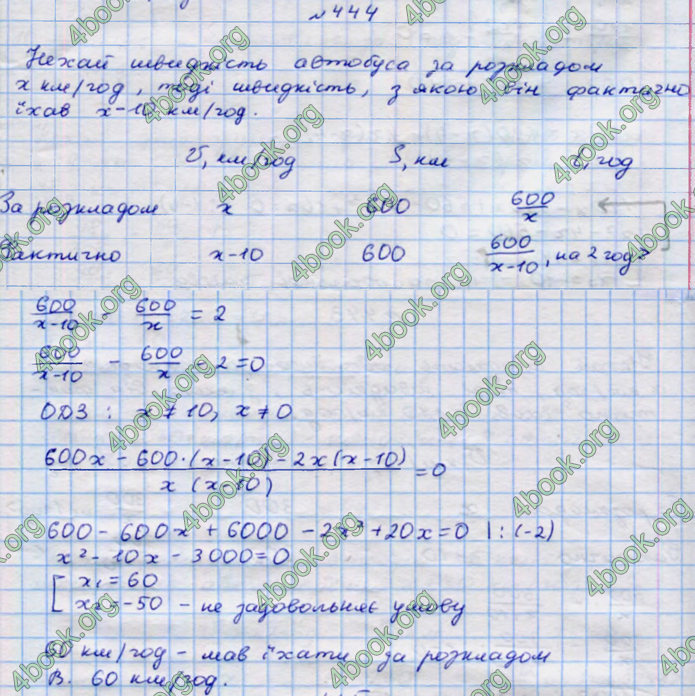 №444
Нехай швидкість автобуса за розкладом
x км/год, тоді швидкість, з якою він фактично
їхав x-10 км/год.
V, км/год S, км t, год
За розкладом x 600 600/x
Фактично x-10 600 600/(x-10), на 2 год >
600/(x-10) - 600/x = 2
600/(x-10) - 600/x - 2 = 0
ОДЗ: x ≠ 10, x ≠ 0
(600x - 600·(x-10) - 2x(x-10))/(x(x-10)) = 0
600 - 600x + 6000 - 2x² + 20x = 0 |:(-2)
x² - 10x - 3000 = 0
[ x₁ = 60
x₂ = -50 - не задовольняє умову
60 км/год - мав їхати за розкладом
В. 60 км/год.
4book.org